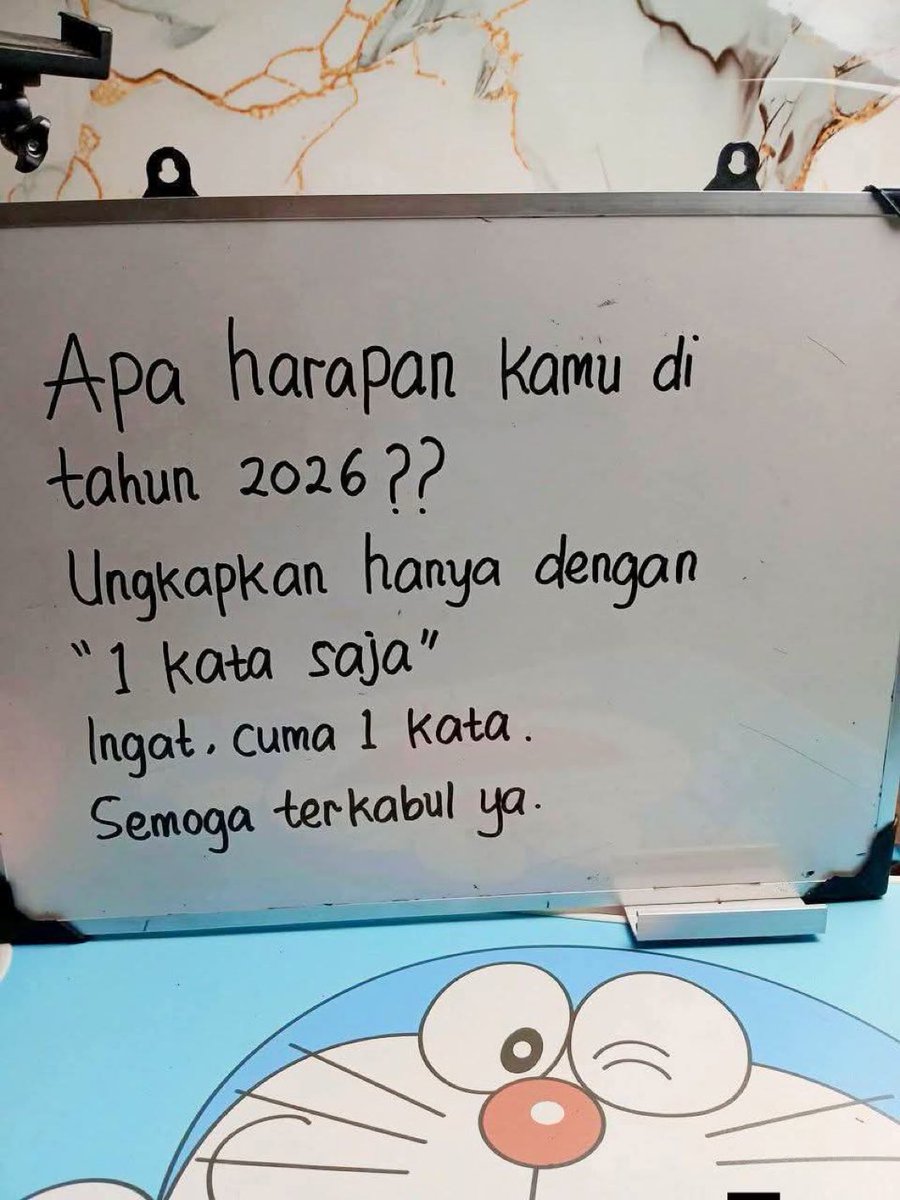 Apa harapan kamu di
tahun 2026??
Ungkapkan hanya dengan
"1 kata saja"
Ingat, cuma 1 kata.
Semoga terkabul ya.